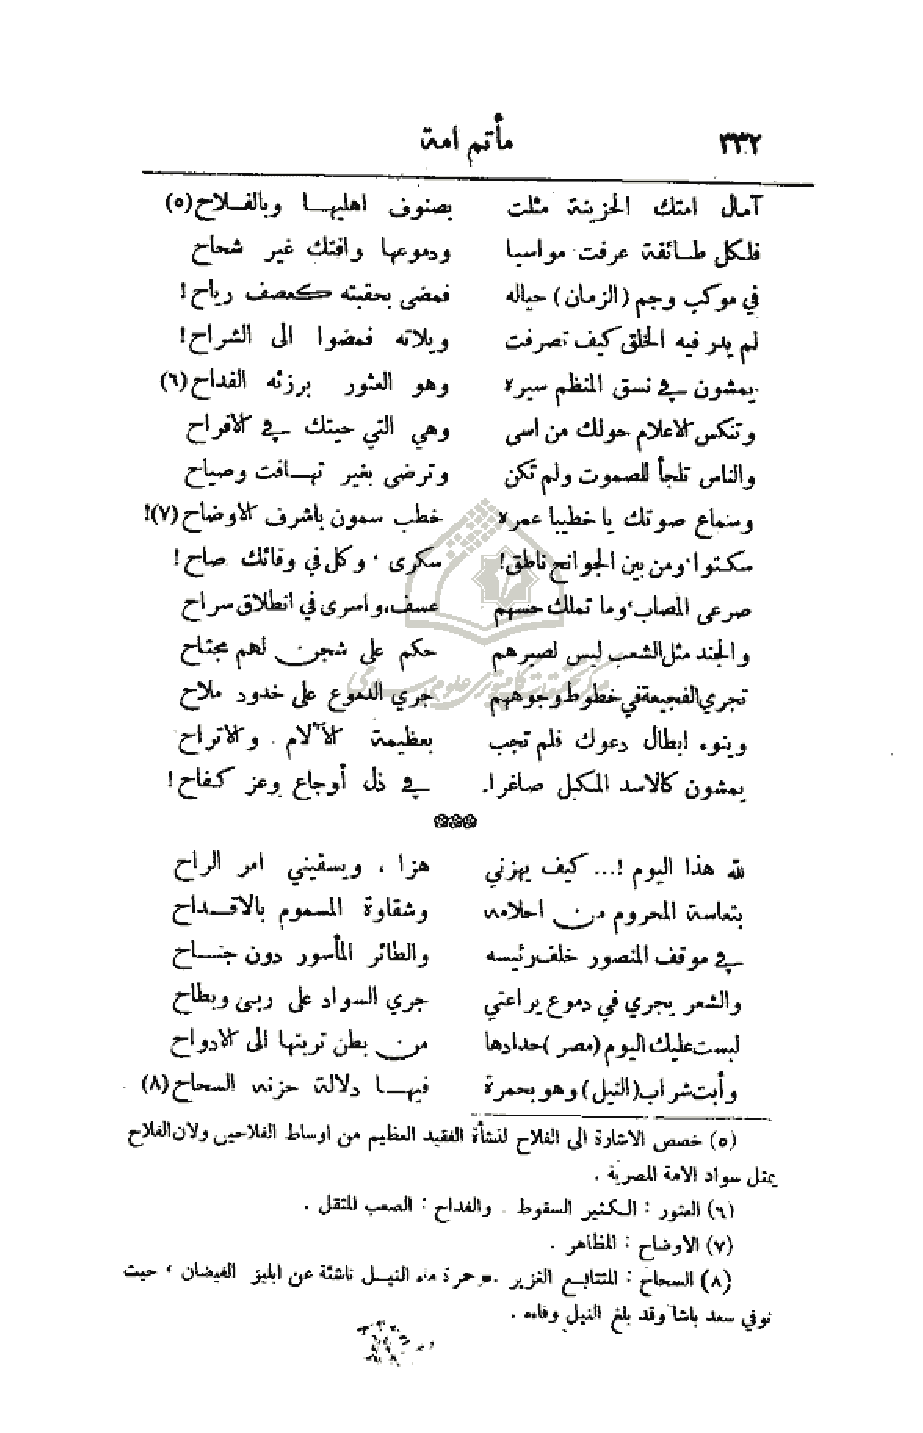 ٣٣٢ مأتم امة
آمال امتك الحزينة مثلت بصنوف اهليها وبالفلاح (٥)
فلكل طائفة عرفت مواسيا ودموعها وافتك غير شحاح
في موكب وجم (الزمان) حياله فمضى بحقبته كعصف رياح!
لم يدر فيه الخلق كيف تصرفت ويلاته فمضوا الى الشراح!
يمشون في نسق المنظم سيره وهو العثور برزئه الفداح (٦)
وتنكس الاعلام حولك من اسى وهي التي حيتك في الافراح
والناس تلجأ للصموت ولم تكن وترضى بغير تهافت وصياح
وسماع صوتك يا خطيبا عمره خطب سمون باشرف الاوضاح (٧)!
سكتوا ومن بين الجوانح ناطق! سكرى، وكل في وفائك صاح!
صرعى المصاب، وما تملك حسهم عسف، واسرى في انطلاق سراح
والجند مثل الشعب ليس لصبرهم حكم على شجن لهم مجتاح
تجري الفجيعة في خطوط وجوههم جري الدموع على خدود ملاح
وينوء ابطال دعوك فلم تجب بعظيمة الآلام والاتراح
يمشون كالاسد المكبل صاغرا في ذل أوجاع وعز كفاح!
***
لله هذا اليوم!... كيف يهزني هزا، ويسقيني امر الراح
بتعاسة المحروم من احلامه وشقاوة المسموم بالاقداح
في موقف المنصور خلف رئيسه والطائر المأسور دون جناح
والشعر يجري في دموع يراعتي جري السواد على ربى وبطاح
لبست عليك اليوم (مصر) حدادها من بطن تربتها الى الادواح
وأبت شراب (النيل) وهو بحمرة فيها دلالة حزنه السحاح (٨)
(٥) خصص الاشارة الى الفلاح لنشأة الفقيد العظيم من اوساط الفلاحين ولان الفلاح
يمثل سواد الامة المصرية.
(٦) العثور: الكثير السقوط. والفداح: الصعب المثقل.
(٧) الاوضاح: المظاهر.
(٨) السحاح: المتتابع الغزير. وحمرة ماء النيل ناشئة عن ابليز الفيضان، حيث
توفي سعد باشا وقد بلغ النيل وفاءه.